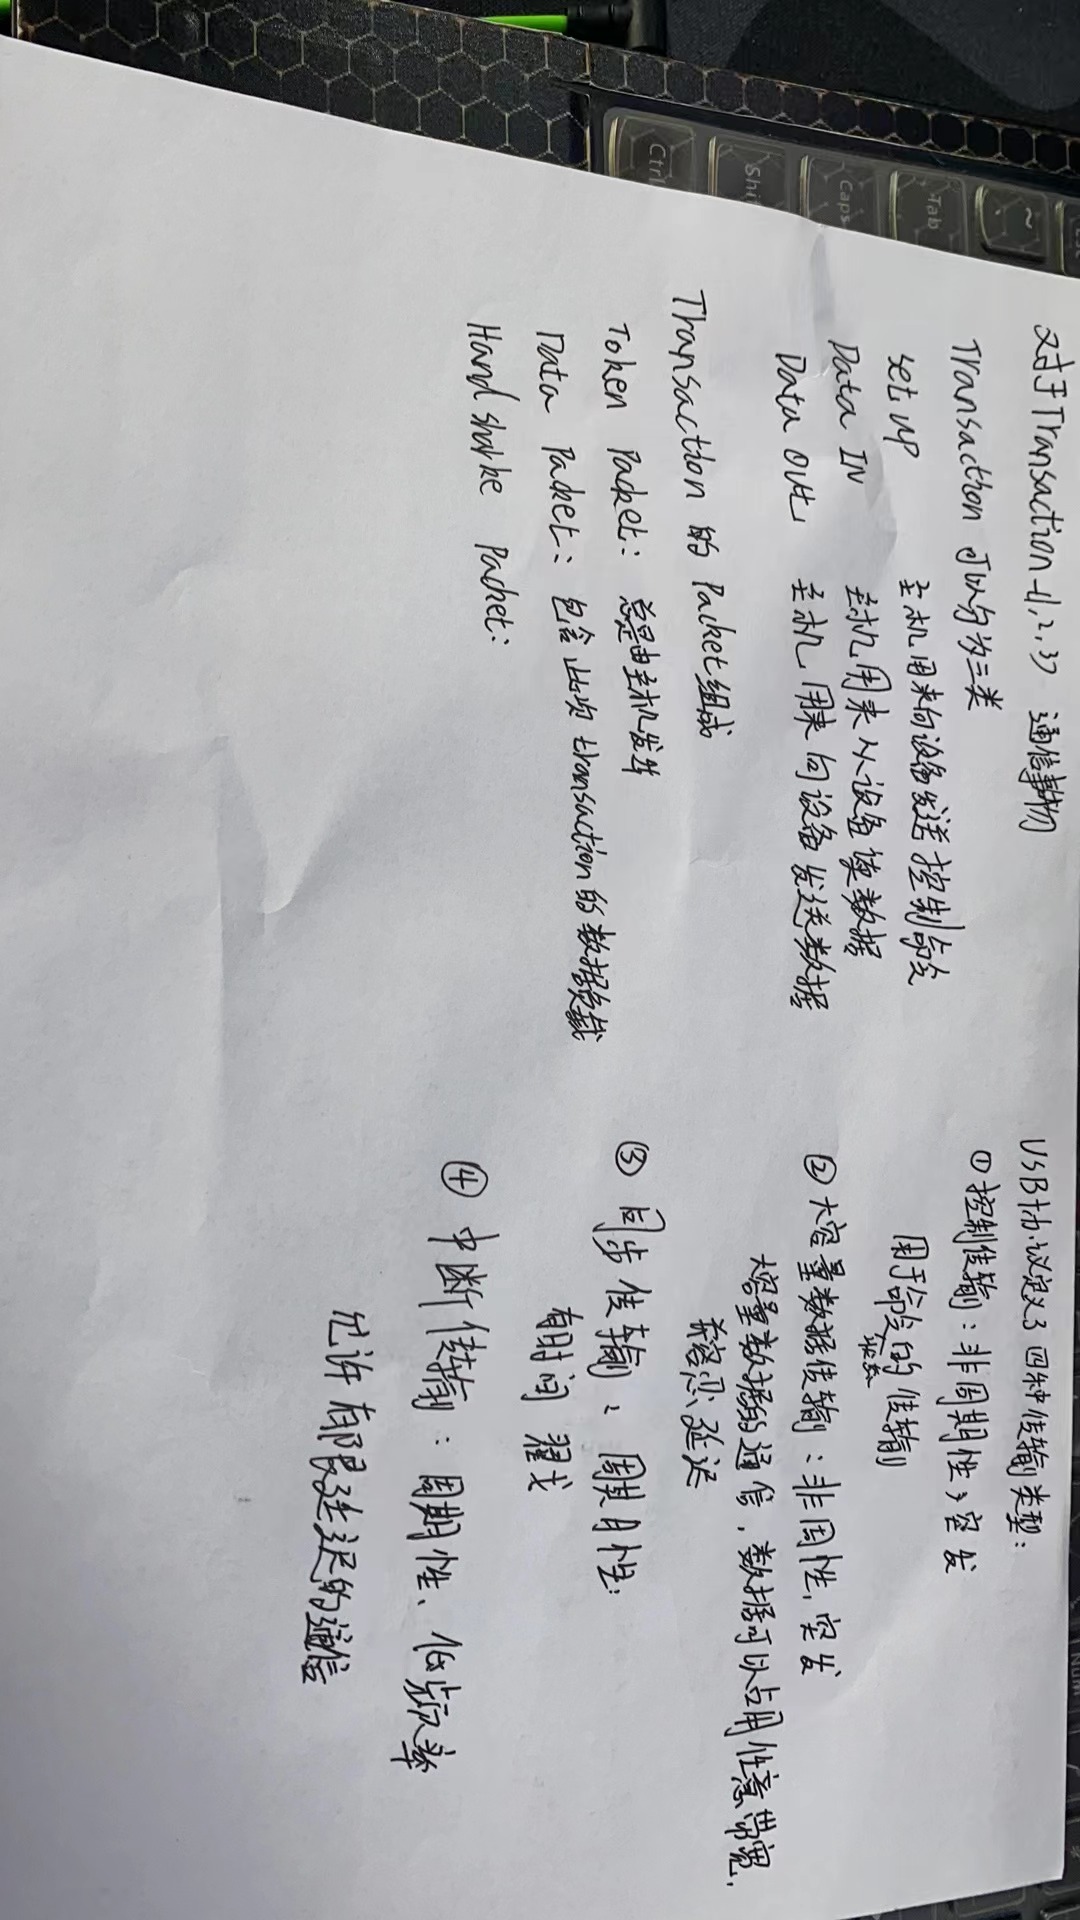 对于Transaction-{1,2,3} 通信事物
Transaction 可以分为三类
set up 主机用来向设备发送控制命令
Data IN 主机用来从设备读数据
Data OUt 主机用来向设备发送数据
Transaction 的 Packet组成
Token Packet: 总是由主机发生
Data Packet: 包含此次 transaction的数据负载
Hand sharke Packet:
USB协议定义了四种传输类型:
① 控制传输:非周期性,突发
用于命令的传输
状态
② 大容量数据传输:非周性,突发
大容量数据的通信,数据可以占用任意带宽,
并容忍延迟
③ 同步传输: 周期性:
有时间 翟戈
④ 中断传输:周期性、低频率
允许有限延迟的通信
~
Tab
Caps
Shi
Ctrl
Num